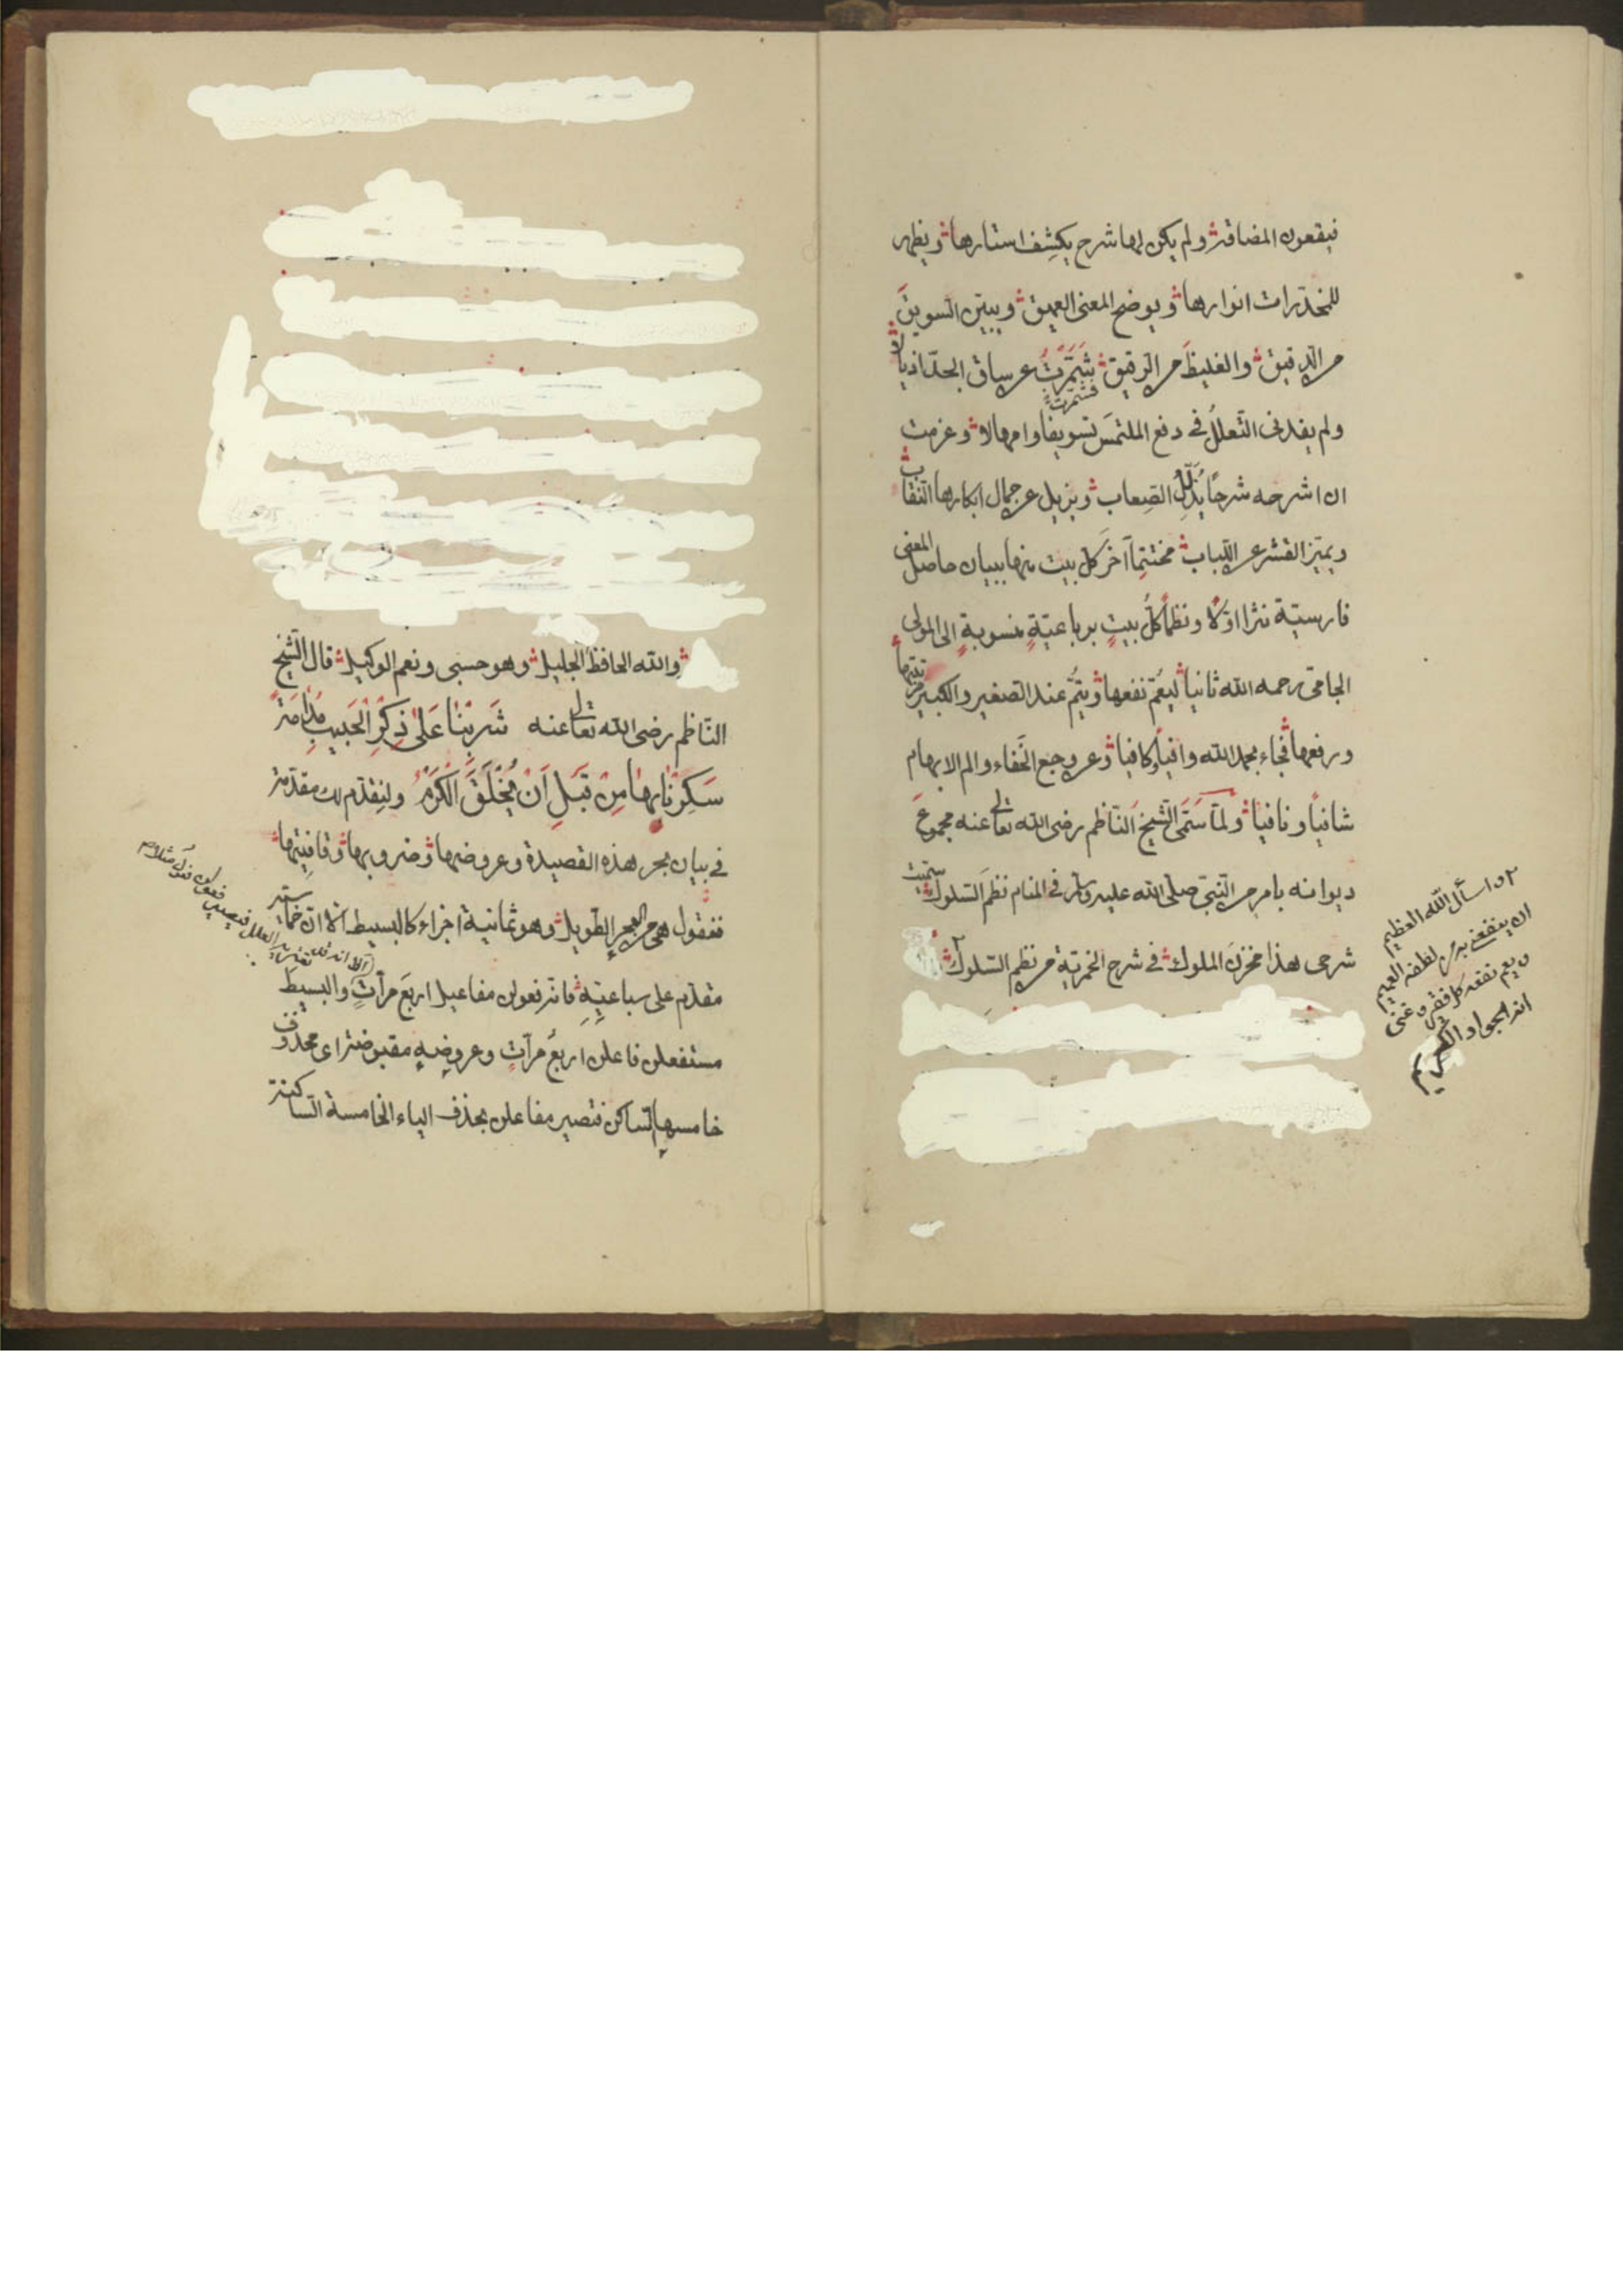 فيقعون المضاقة ولم يكن لها شرح يكشف استارها ويظهر
للمخدرات انوارها ويوضح المعنى العميق ويبين السويق
من الدقيق والغليظ من الرقيق شمرت عن ساق الجد اذيالا
فشمرت
ولم يفدنى التعلل فى دفع الملتمس تسويفا وامهالا وعزمت
ان اشرحه شرحا يذلل الصعاب ويزيل عن جمال ابكارها النقاب
ويميز القشر عن اللباب مختتما آخر كل بيت منها ببيان حاصل المعنى
فارسية نثرا اولا ونظما كل بيت برباعية منسوبة الى المولى
الجامى رحمه الله ثانيا ليعم نفعها ويتم عند الصغير والكبير
ورفعها فجاء بحمد الله وافيا وكافيا وعن وجع الخفاء والم الابهام
شافيا ونافيا ولما سمى الشيخ الناظم رضى الله تعالى عنه مجموع
ديوانه بامر من النبى صلى الله عليه وسلم فى المنام نظم السلوك سميت
شرحى هذا مخزن الملوك فى شرح الخمرية من نظم السلوك
واسأل الله العظيم
ان ينفعنى لطفه العميم
ويعم نفعه كل فقير وغنى
انه الجواد الكريم
والله الحافظ الجليل وهو حسبى ونعم الوكيل قال الشيخ
الناظم رضى الله تعالى عنه شَرِبْنَا عَلَى ذِكْرِ الْحَبِيبِ مُدَامَةً
سَكِرْنَا بِهَا مِنْ قَبْلِ أَنْ يُخْلَقَ الْكَرْمُ ولنقدم لك مقدمة
فى بيان بحر هذه القصيدة وعروضها وضروبها وقافيتها
فنقول هى من البحر الطويل وهو ثمانية اجزاء كالبسيط الا ان خماسيته
مقدم على سباعيته فانه فعولن مفاعيلن اربع مرات والبسيط
مستفعلن فاعلن اربع مرات وعروضه مقبوضة اى محذوف
خامسها الساكن فتصير مفاعلن بحذف الياء الخامسة الساكنة